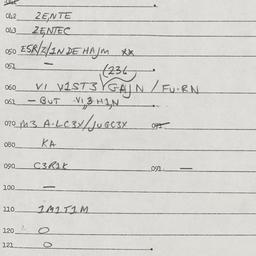 042 ZENTE
043 ZENTEC
050 ESR/Z/1NDEHAJM **
051 —
(236
060 VI V1ST3 YGAJN / FU·RN
061 — BUT VI3H1N
070 M3 A·LC3Y/JUGC3Y 071
080 KA
090 C3R1K 091 —
100 —
110 1M1T1M
120 O
121 O